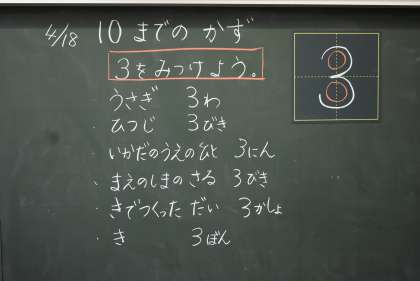 4/18 10までの かず
3をみつけよう。
3
うさぎ 3わ
・ひつじ 3びき
・いかだのうえのひと 3にん
・まえのしまの さる 3びき
・きでつくった だい 3かしょ
・き 3ぼん